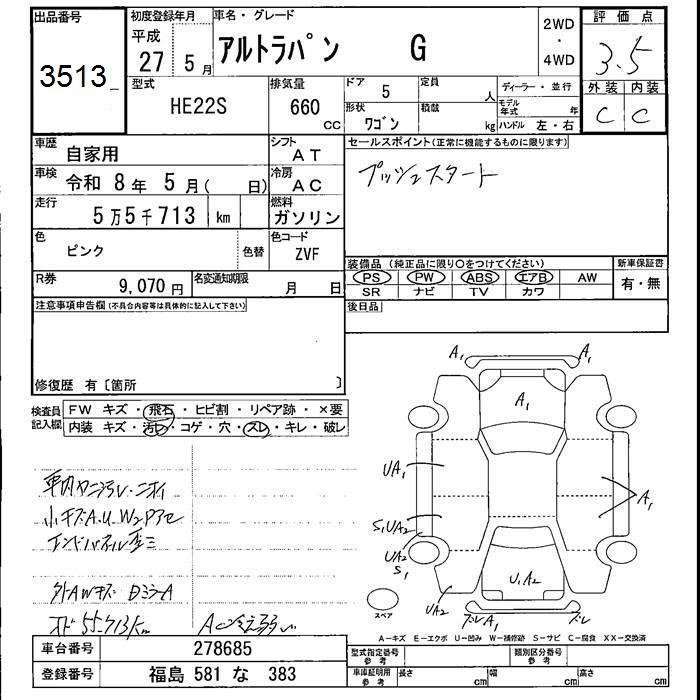 出品番号
3513
初度登録年月
平成
27 5月
車名・グレード
アルトラパン G
2WD
・
4WD
評価点
3.5
外装 内装
C C
型式
HE22S
排気量
660
CC
ドア 5
定員 人
形状
ワゴン
積載 kg
ディーラー・並行
モデル年式 年
ハンドル 左・右
車歴
自家用
シフト
AT
車検
令和 8年 5月( 日)
冷房
AC
走行
5万5千713 km
燃料
ガソリン
色
ピンク
色替
色コード
ZVF
R券
9,070円
名変通知期限
月 日
セールスポイント(正常に機能するものに限ります)
プッシュスタート
装備品 (純正品に限り○をつけてください)
PS PW ABS エアB AW
SR ナビ TV カワ
新車保証書
有・無
後日品
注意事項申告欄(不具合内容等は具体的に記入して下さい)
修復歴 有〔箇所 〕
検査員
記入欄
FW キズ・飛石・ヒビ割・リペア跡・×要
内装 キズ・汚レ・コゲ・穴・スレ・キレ・破レ
車内ヤニ汚レ・ニオイ
小キズA.U.W2P
外AWキズ DミラーA
オド 55713km
AC冷え弱い
A1 A1
A1
UA1
A1
S1UA2
UA2
S1
U1A2
UA2
ズレA1 ズレ
スペア
A-キズ E-エクボ U-凹み W-補修跡 S-サビ C-腐食 XX-交換済
車台番号
278685
登録番号
福島 581 な 383
型式指定番号
参考
類別区分番号
参考
車庫証明用
参考
長さ cm
幅 cm
高さ cm